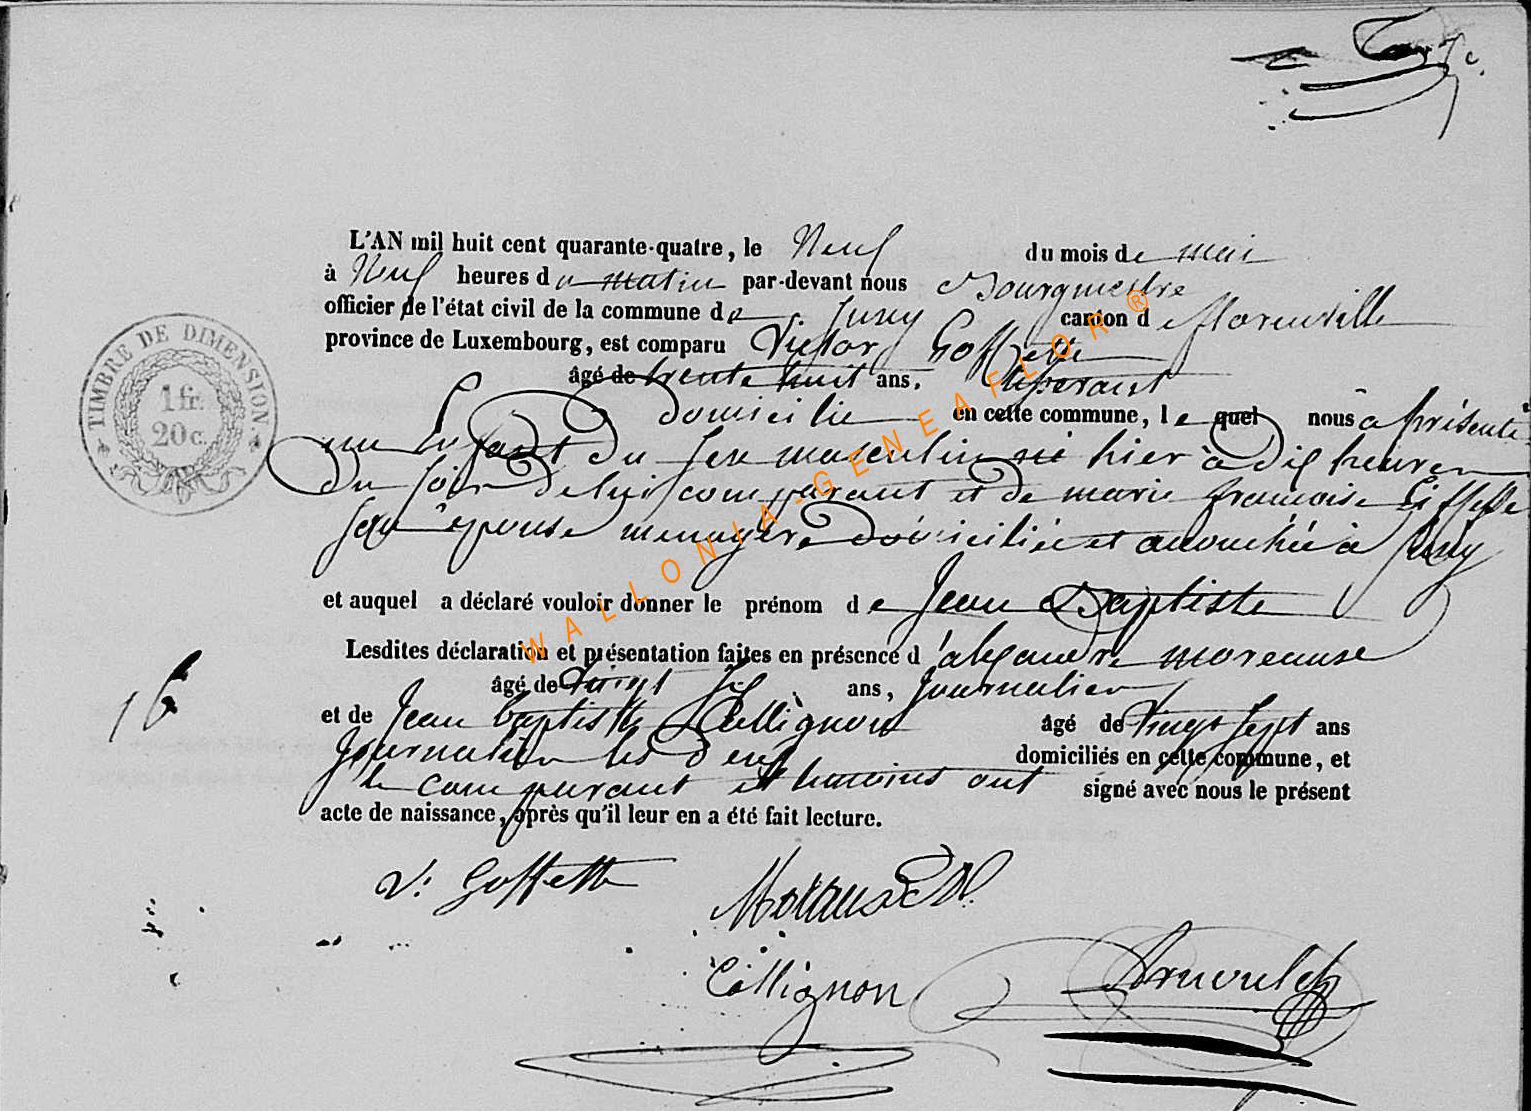 TIMBRE DE DIMENSION
1 fr.
20 c.
L'AN mil huit cent quarante-quatre, le Neuf du mois de mai
à Neuf heures du matin par-devant nous Bourgmestre
officier de l'état civil de la commune de Jusey canton de florenville
province de Luxembourg, est comparu Victor Goffette
âgé de trente huit ans,
domicilié en cette commune, lequel nous a présenté
un Enfant du sexe masculin né hier à dix heures
du soir de lui comparant et de marie françoise
son épouse menagère domiciliée et accouchée à Jusey
et auquel a déclaré vouloir donner le prénom de Jean Baptiste
Lesdites déclaration et présentation faites en présence d'alexandre moreause
âgé de vingt six ans, Journalier
et de Jean baptiste Collignon âgé de vingt sept ans
Journalier les deux domiciliés en cette commune, et
le comparant et temoins ont signé avec nous le présent
acte de naissance, après qu'il leur en a été fait lecture.
16
V: Goffette
Collignon
WALLONIA-GENEAFLOR®